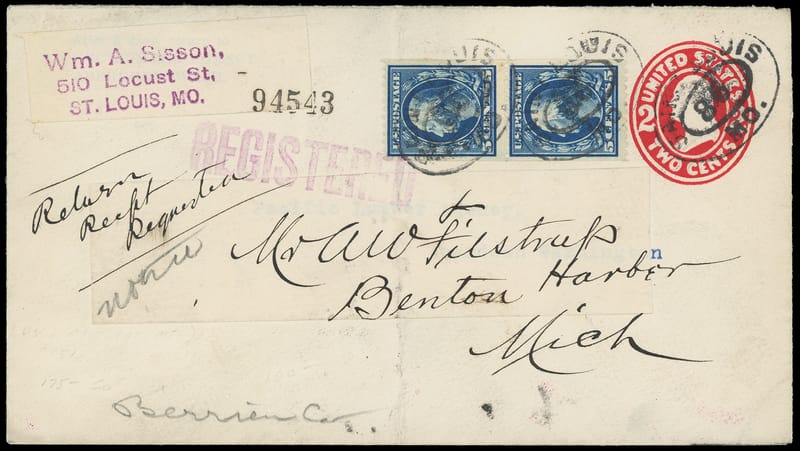 Wm. A. Sisson,
510 Locust St,
ST. LOUIS, MO.
94543
REGISTERED
U.S. POSTAGE
5 CENTS 5
U.S. POSTAGE
5 CENTS 5
UNITED STATES
2
TWO CENTS
LOUIS
MO.
Return
Receipt
Requested
Mr A W Filstrup
Benton Harbor
Mich
n
Berrien Co.